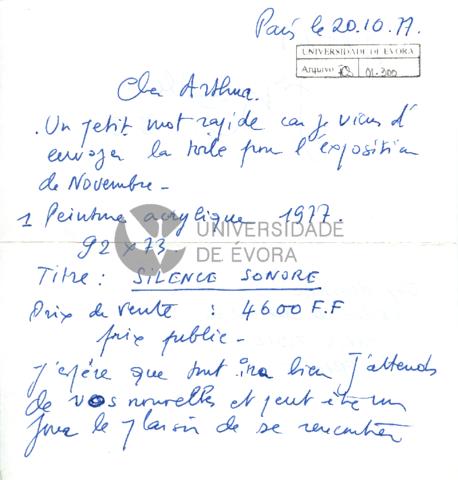 Paris le 20.10.77.
UNIVERSIDADE DE ÉVORA
Arquivo 01-300
Cher Arthur.
. Un petit mot rapide car je viens d'
envoyer la toile pour l'exposition
de Novembre -
1 Peinture acrylique 1977.
92 x 73.
UNIVERSIDADE
DE ÉVORA
Titre : SILENCE SONORE
Prix de vente : 4600 F.F
prix public -
j'espére que tout ira bien j'attends
de vos nouvelles et peut être un
jour le plaisir de se rencontrer